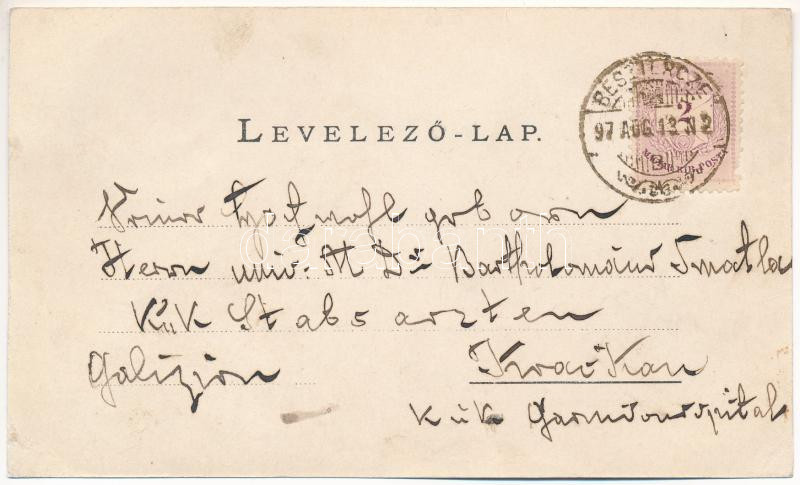 BESZTERCZE
97 AUG. 13. N 2
2
MAGYAR KIR. POSTA
LEVELEZŐ-LAP.
Seiner Hochwohlgeboren
Herrn univ. M Dr Bartholomäus Smatla
K u K Stabsarzten
Galizien Krackau
K u K Garnisonsspital
darabanth